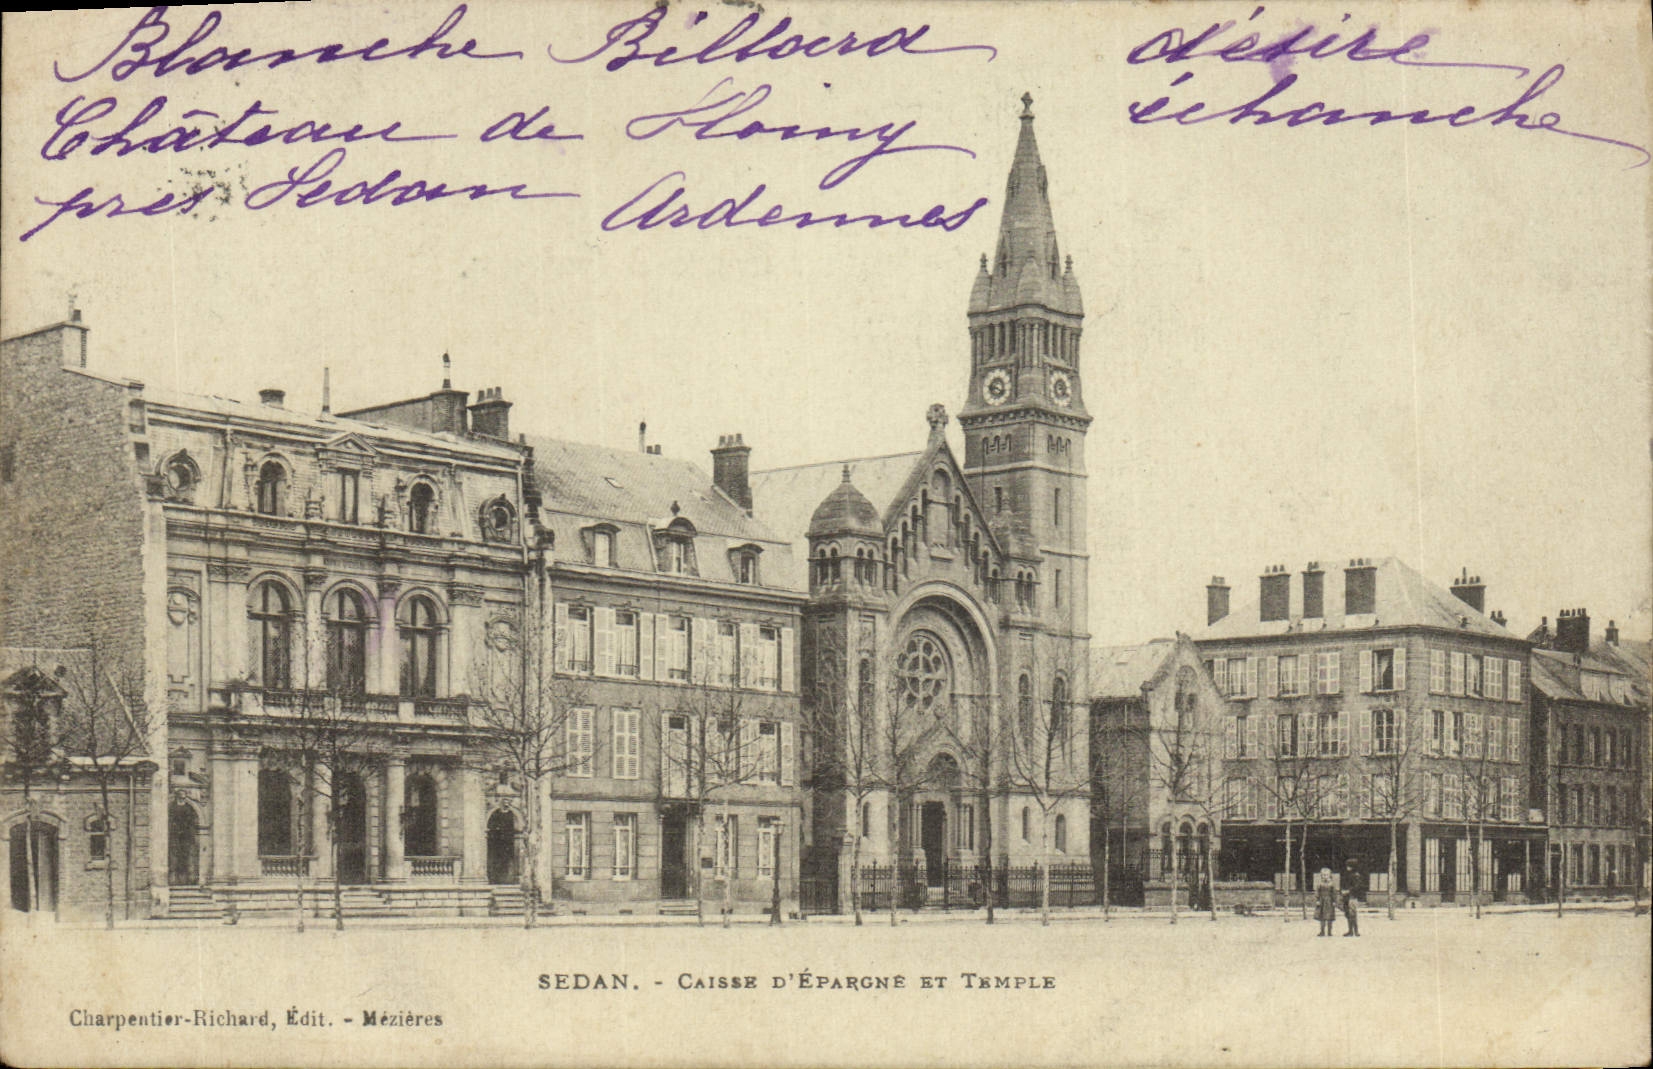 Blanche Billard désire
Château de Floing échanche
près Sedan Ardennes
SEDAN. - CAISSE D'ÉPARGNE ET TEMPLE
Charpentier-Richard, Édit. - Mézières